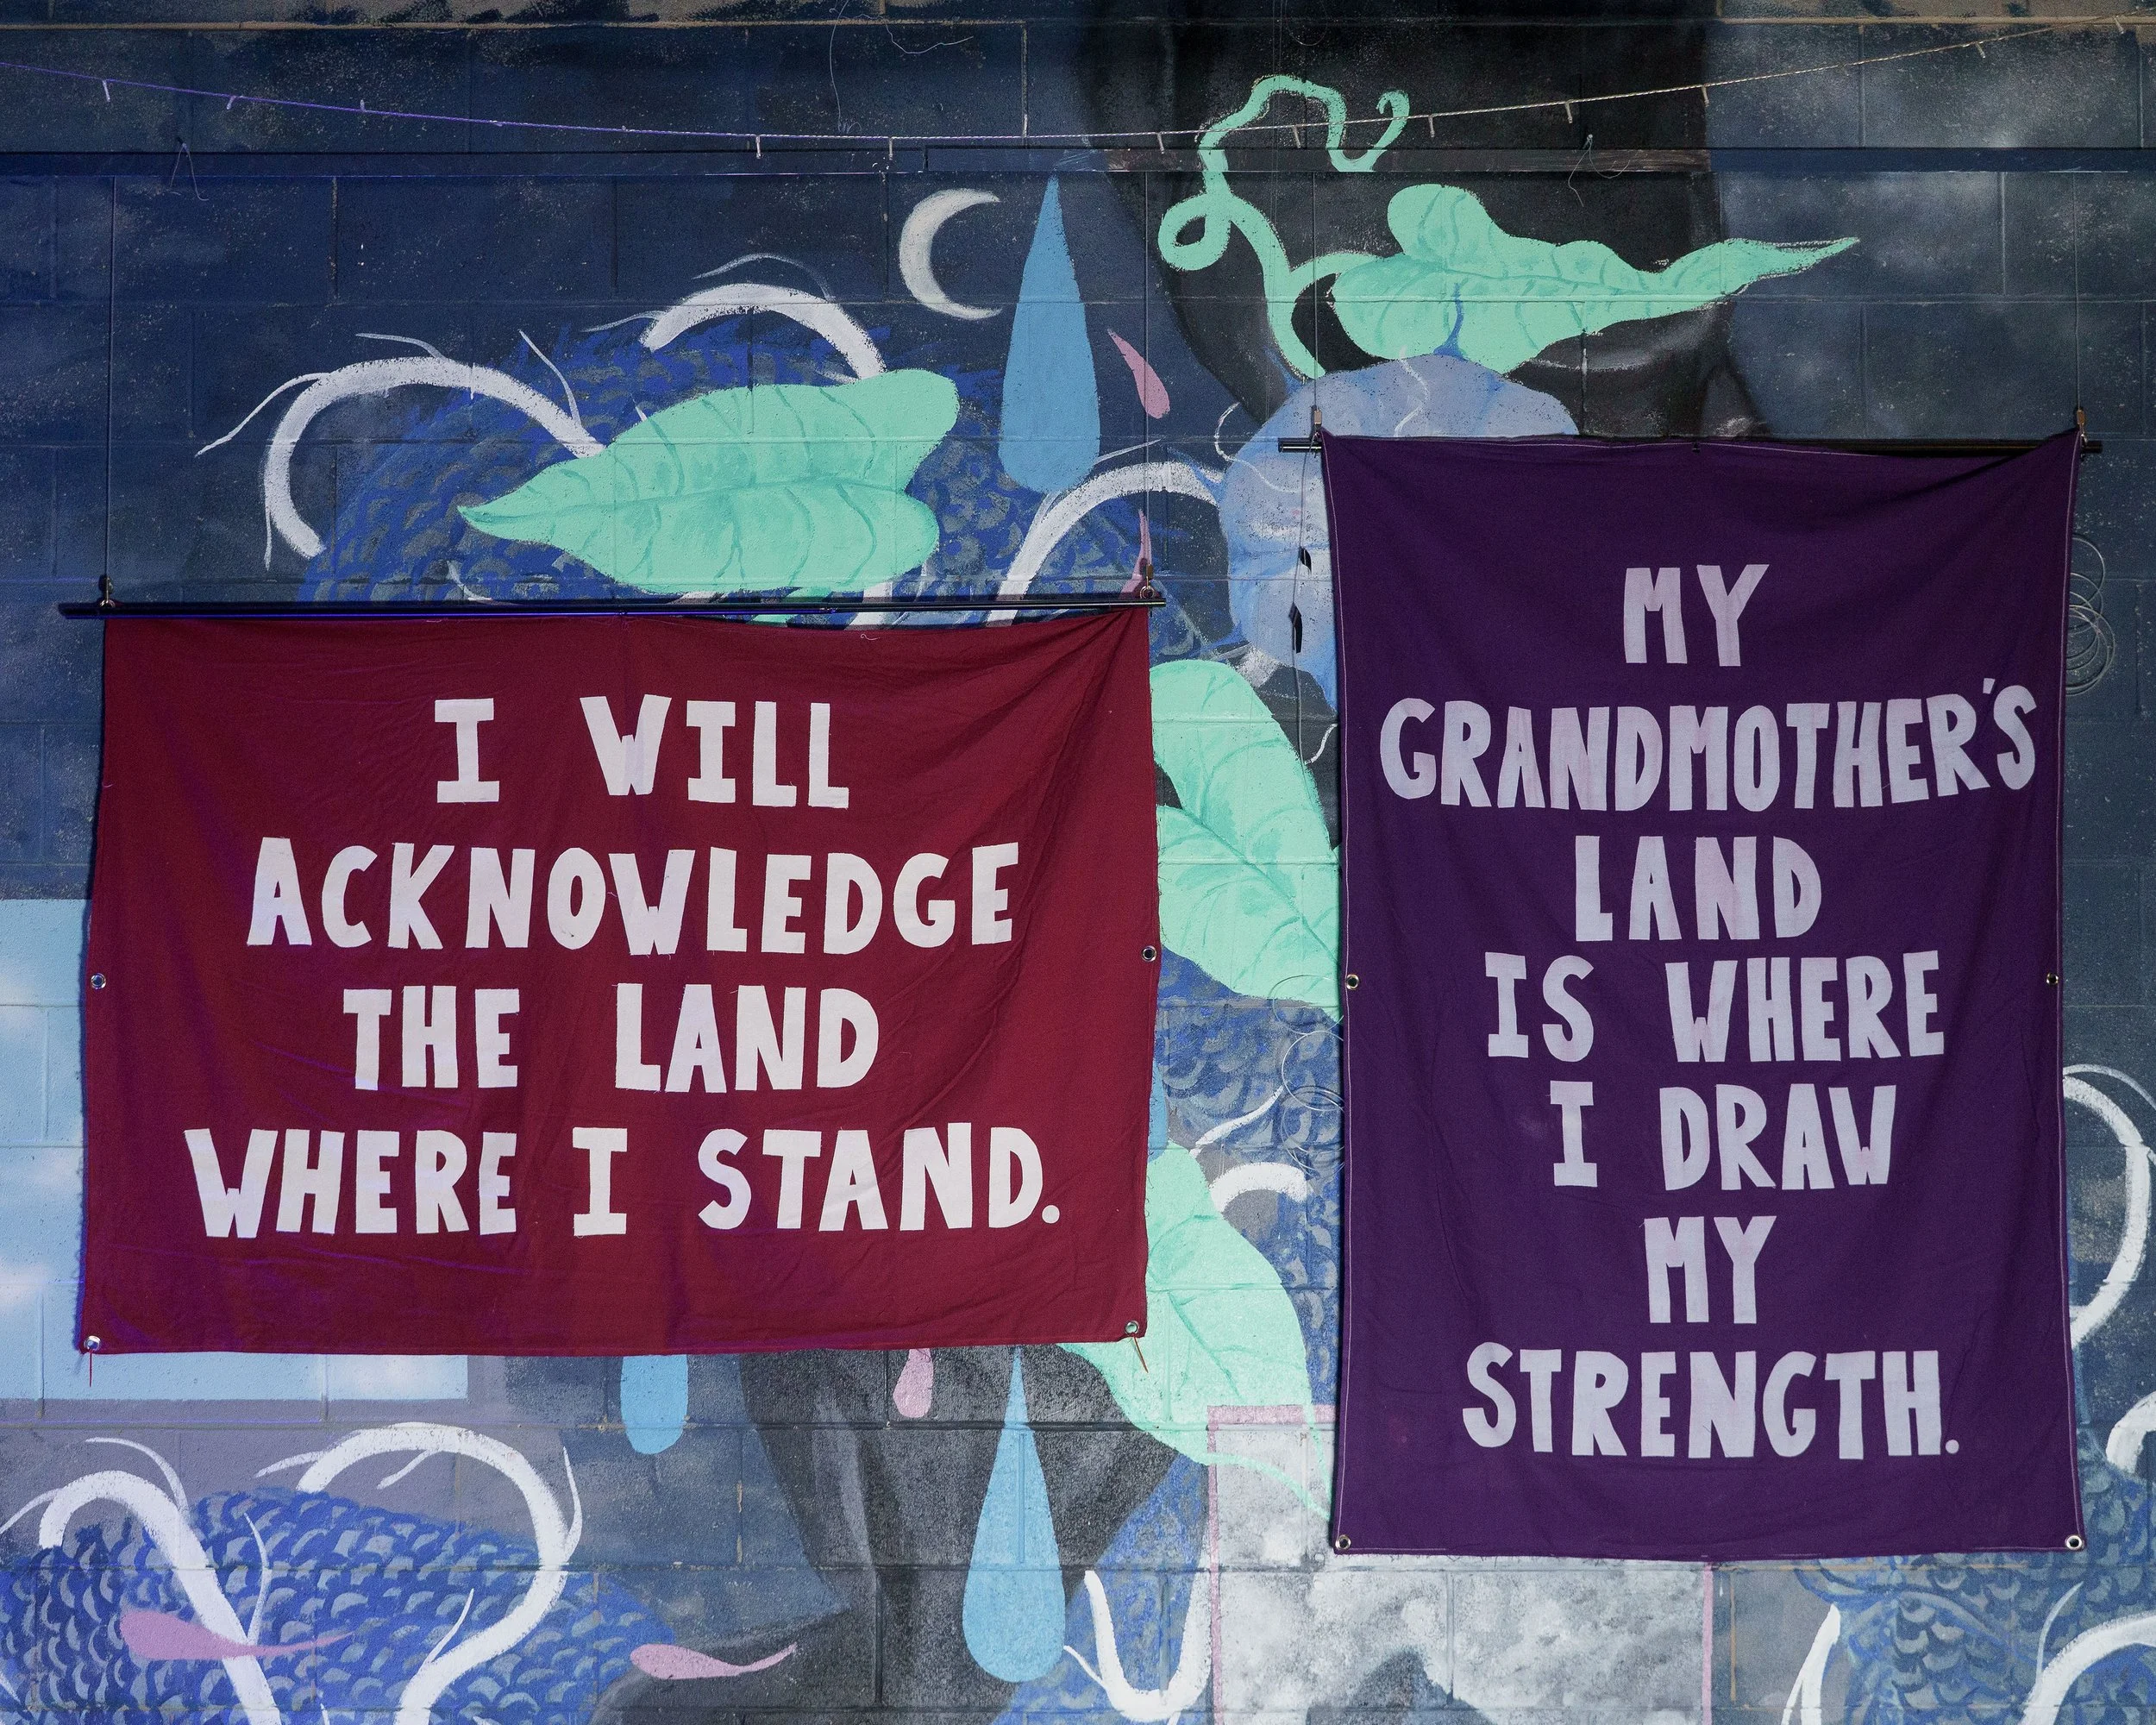 I WILL
ACKNOWLEDGE
THE LAND
WHERE I STAND.
MY
GRANDMOTHER'S
LAND
IS WHERE
I DRAW
MY
STRENGTH.